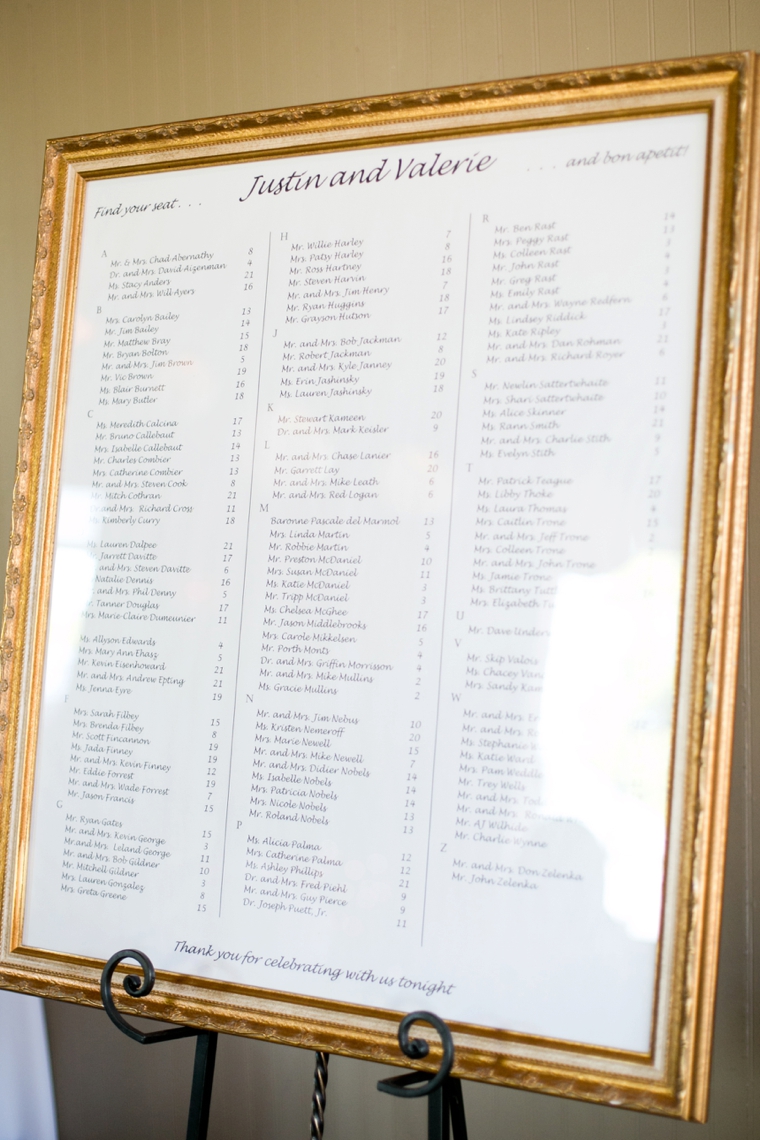 Justin and Valerie
Find your seat . . .
. . . and bon apetit!
A
Mr. & Mrs. Chad Abernathy 8
Dr. and Mrs. David Aizenman 4
Ms. Stacy Anders 21
Mr. and Mrs. Will Ayers 16
B
Mrs. Carolyn Bailey 13
Mr. Jim Bailey 14
Mr. Matthew Bray 15
Mr. Bryan Bolton 18
Mr. and Mrs. Jim Brown 5
Mr. Vic Brown 19
Ms. Blair Burnett 16
Ms. Mary Butler 18
C
Ms. Meredith Calcina 17
Mr. Bruno Callebaut 13
Mrs. Isabelle Callebaut 14
Mr. Charles Combier 13
Mrs. Catherine Combier 13
Mr. and Mrs. Steven Cook 8
Mr. Mitch Cothran 21
and Mrs. Richard Cross 11
Ms. Kimberly Curry 18
Ms. Lauren Dalpee 21
Jarrett Davitte 17
and Mrs. Steven Davitte 6
Natalie Dennis 16
and Mrs. Phil Denny 5
Tanner Douglas 17
Mrs. Marie-Claire Dumeunier 11
Ms. Allyson Edwards 4
Mrs. Mary Ann Ehasz 5
Mr. Kevin Eisenhoward 21
Mr. and Mrs. Andrew Epting 21
Ms. Jenna Eyre 19
F
Mrs. Sarah Filbey 15
Mrs. Brenda Filbey 19
Mr. Scott Fincannon 8
Ms. Jada Finney 19
Mr. and Mrs. Kevin Finney 12
Mr. Eddie Forrest 19
Mr. and Mrs. Wade Forrest 7
Mr. Jason Francis 15
G
Mr. Ryan Gates 15
Mr. and Mrs. Kevin George 3
Mr. and Mrs. Leland George 11
Mr. and Mrs. Bob Gildner 10
Mr. Mitchell Gildner 3
Mrs. Lauren Gonzalez 8
Mrs. Greta Greene 15
H
Mr. Willie Harley 7
Mrs. Patsy Harley 8
Mr. Ross Hartney 16
Mr. Steven Harvin 18
Mr. and Mrs. Jim Henry 7
Mr. Ryan Huggins 18
Mr. Grayson Hutson 17
J
Mr. and Mrs. Bob Jackman 12
Mr. Robert Jackman 8
Mr. and Mrs. Kyle Janney 20
Ms. Erin Jashinsky 19
Ms. Lauren Jashinsky 18
K
Mr. Stewart Kameen 20
Dr. and Mrs. Mark Keisler 9
L
Mr. and Mrs. Chase Lanier 16
Mr. Garrett Lay 20
Mr. and Mrs. Mike Leath 6
Mr. and Mrs. Red Logan 6
M
Baronne Pascale del Marmol 13
Mrs. Linda Martin 5
Mr. Robbie Martin 4
Mr. Preston McDaniel 10
Mrs. Susan McDaniel 11
Ms. Katie McDaniel 3
Mr. Tripp McDaniel 3
Ms. Chelsea McGhee 17
Mr. Jason Middlebrooks 16
Mrs. Carole Mikkelsen 5
Mr. Porth Monts 4
Dr. and Mrs. Griffin Morrisson 4
Mr. and Mrs. Mike Mullins 2
Ms. Gracie Mullins 2
N
Mr. and Mrs. Jim Nebus 10
Ms. Kristen Nemeroff 20
Mrs. Marie Newell 15
Mr. and Mrs. Mike Newell 7
Mr. and Mrs. Didier Nobels 14
Ms. Isabelle Nobels 14
Mrs. Patricia Nobels 14
Mrs. Nicole Nobels 13
Mr. Roland Nobels 13
P
Ms. Alicia Palma 12
Mrs. Catherine Palma 12
Ms. Ashley Phillips 21
Dr. and Mrs. Fred Piehl 9
Mr. and Mrs. Guy Pierce 9
Dr. Joseph Puett, Jr. 11
R
Mr. Ben Rast 14
Mrs. Peggy Rast 13
Ms. Colleen Rast 3
Mr. John Rast 4
Mr. Greg Rast
Ms. Emily Rast 4
Mr. and Mrs. Wayne Redfern 6
Ms. Lindsey Riddick 17
Ms. Kate Ripley 3
Mr. and Mrs. Dan Rohman 21
Mr. and Mrs. Richard Royer 6
S
Mr. Newlin Sattertwhaite 11
Mrs. Shari Sattertwhaite 10
Ms. Alice Skinner 14
Ms. Rann Smith 21
Mr. and Mrs. Charlie Stith 9
Ms. Evelyn Stith 3
T
Mr. Patrick Teague 17
Ms. Libby Thoke 20
Ms. Laura Thomas 4
Mrs. Caitlin Trone 15
Mr. and Mrs. Jeff Trone 2
Mrs. Colleen Trone
Mr. and Mrs. John Trone
Ms. Jamie Trone
Ms. Brittany
Mrs. Elizabeth
U
Mr. Dave
V
Mr. Skip Valois
Ms. Chacey
Mrs. Sandy
W
Mr. and Mrs.
Mr. and Mrs.
Ms. Stephanie
Ms. Katie Ward
Mrs. Pam
Mr. Trey Wells
Mr. and Mrs.
Mr. and Mrs.
Mr. AJ Wilhide
Mr. Charlie Wynne
Z
Mr. and Mrs. Don Zelenka
Mr. John Zelenka
Thank you for celebrating with us tonight